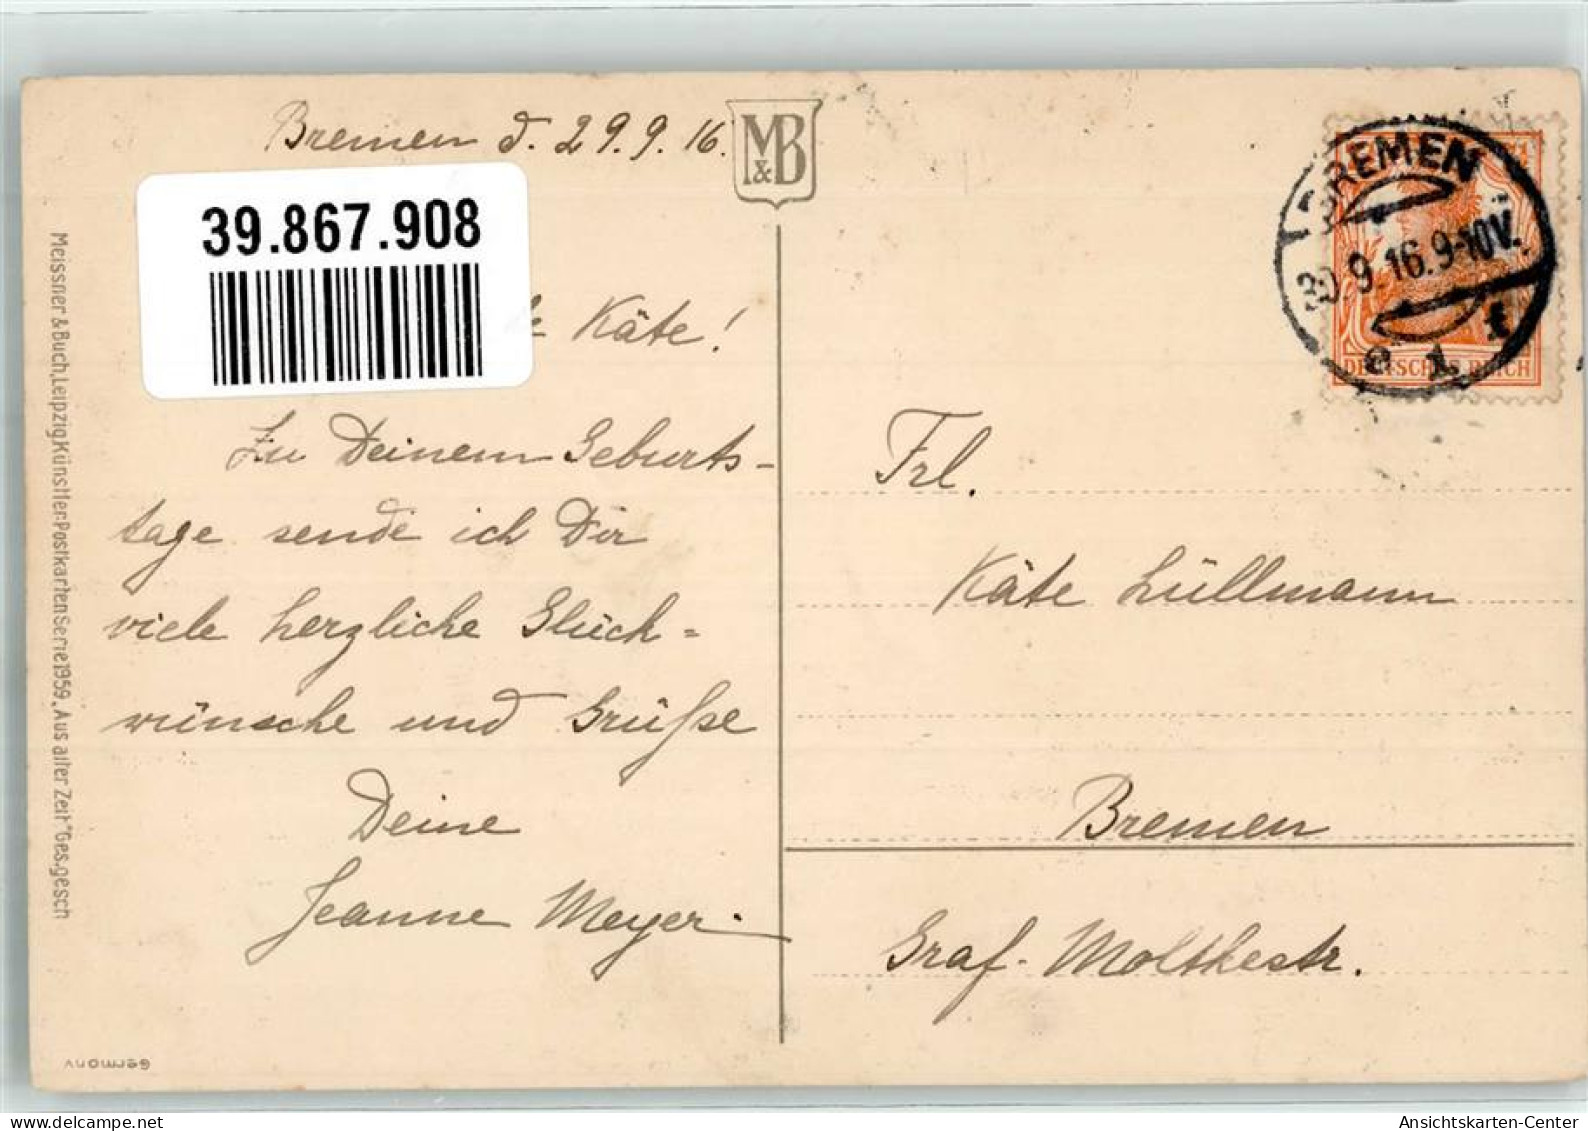 Bremen d. 29.9.16.
M&B
39.867.908
Käte!
Zu Deinem Geburts-
tage sende ich Dir
viele herzliche Glück=
wünsche und Grüße
Deine
Jeanne Meyer.
Meissner & Buch, Leipzig Künstler-Postkarten Serie 1959 „Aus alter Zeit" Ges. gesch
Germany
BREMEN
30.9.16.9-10V.
DEUTSCHES REICH
Frl.
Käte Lüllmann
Bremen
Graf-Moltkestr.
Ansichtskarten-Center